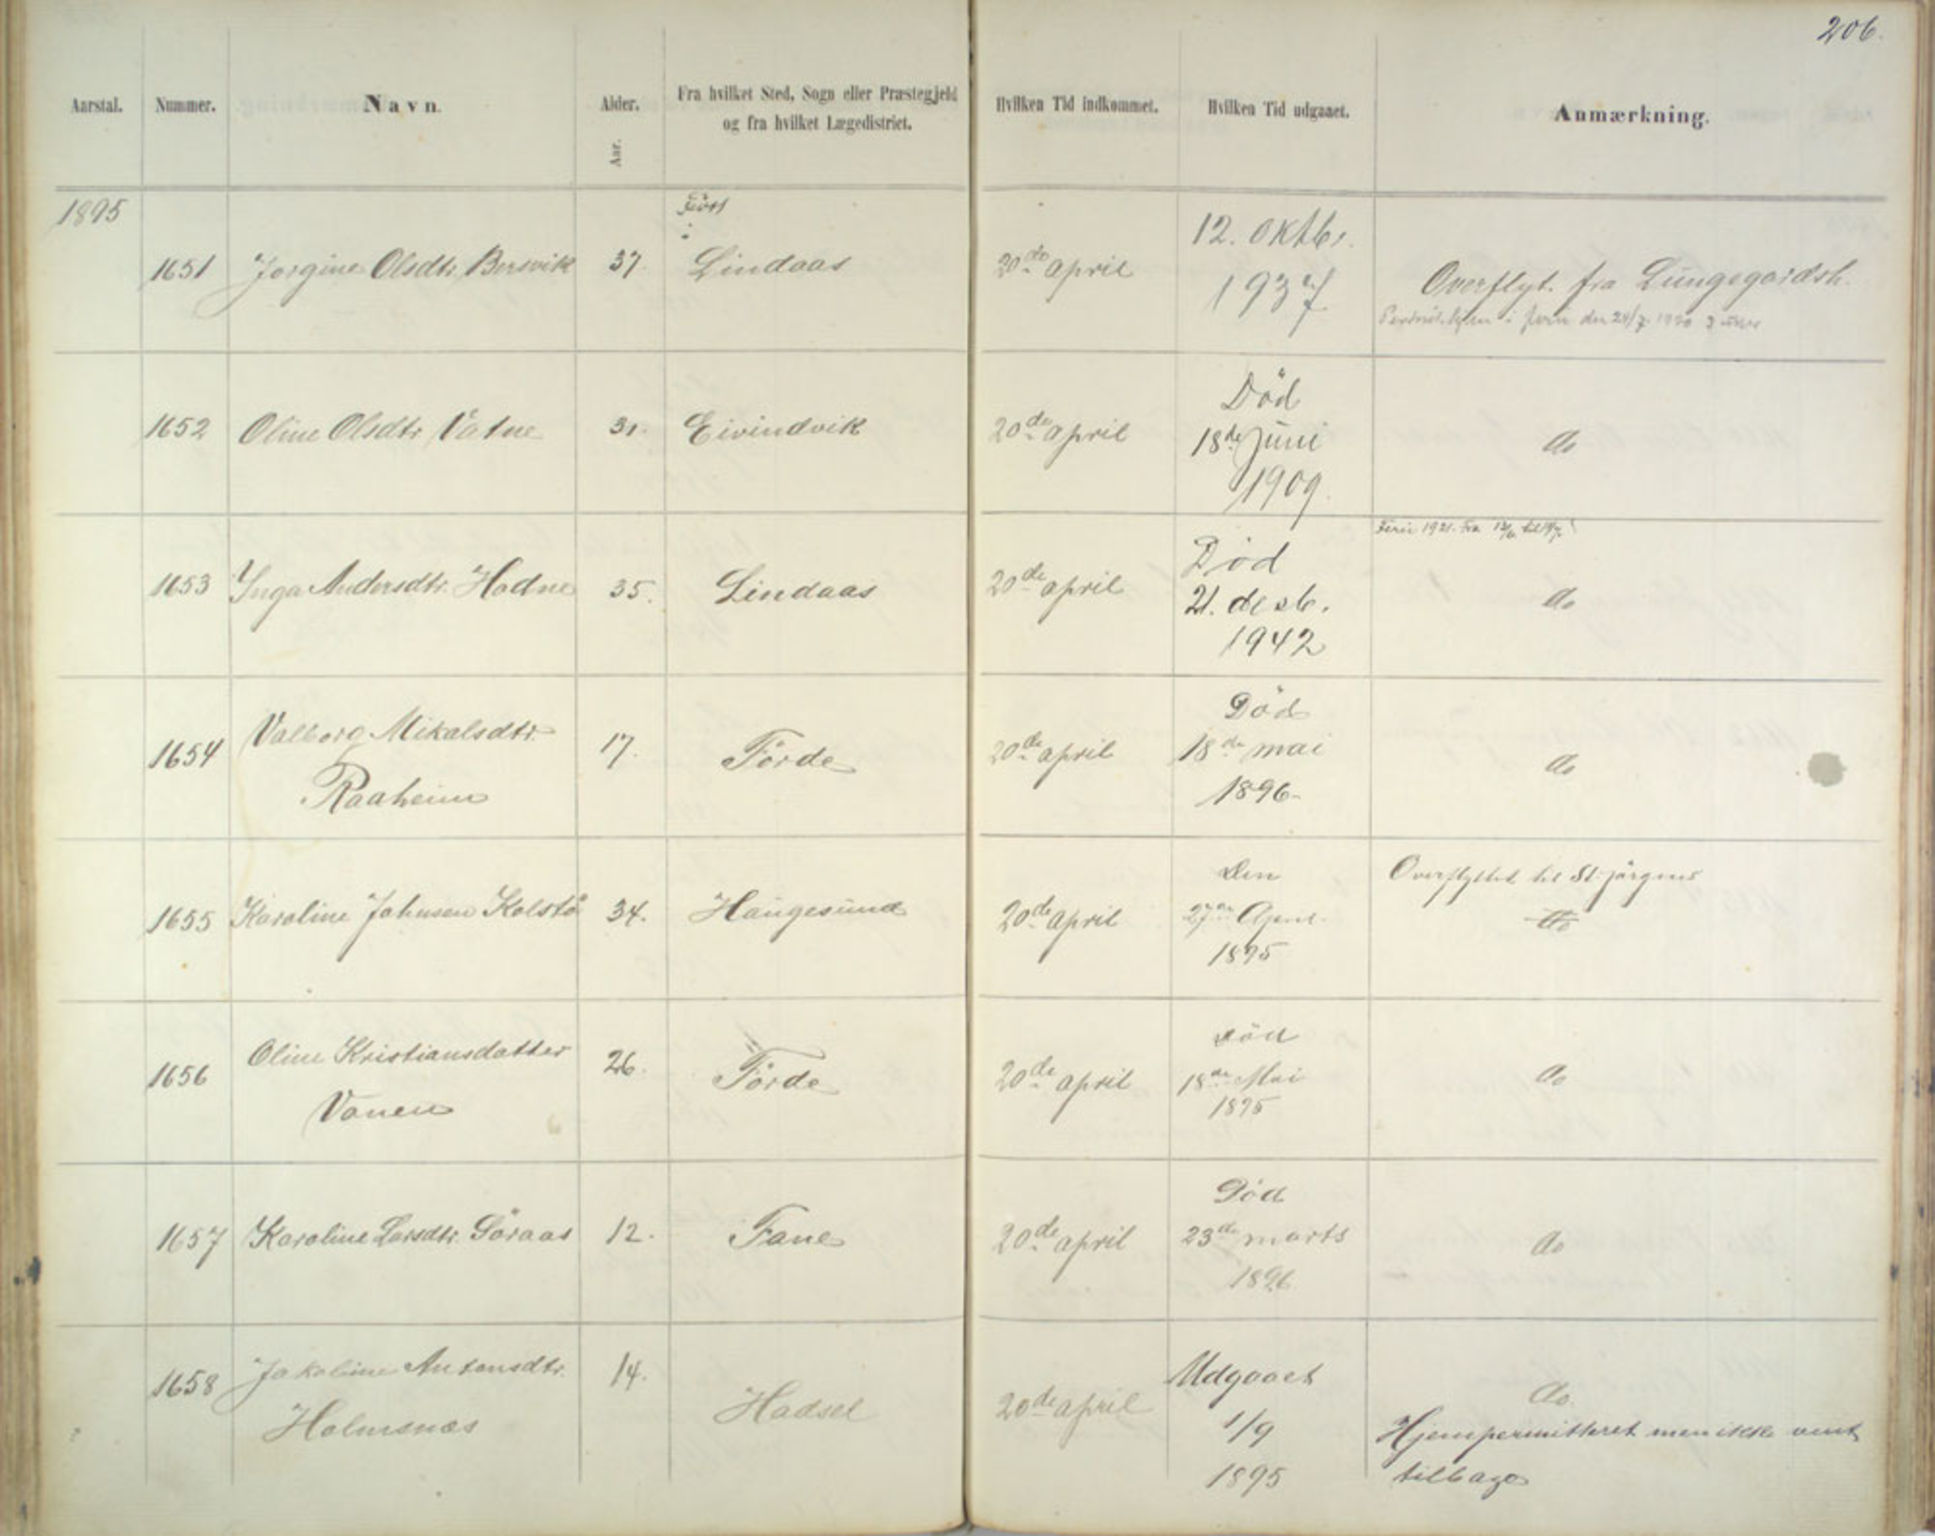 206.
Aarstal. Nummer. Navn. Alder. Aar. Fra hvilket Sted, Sogn eller Præstegjeld og fra hvilket Lægedistrict. Hvilken Tid indkommet. Hvilken Tid udgaaet. Anmærkning.
1895
1651 Jorgine Olsdtr. Bersvik 37 Lindaas 20de april 12. oktbr. 1937 Overflyt. fra Lungegardsh.
i ferie den 24/7 1920 3 uker
1652 Oline Olsdtr. Vatne 31. Eivindvik 20de april Död 18de Juni 1909. do
Ferie 1921. fra 12/6 til 14/7
1653 Inga Andersdtr. Hodne 35. Lindaas 20de april Död 21. desb. 1942 do
1654 Valborg Mikalsdtr. Raaheim 17. Förde 20de april Död 18de mai 1896- do
1655 Karoline Johnsen Kolstö 34. Haugesund 20de april Den 27de April. 1895 Overflyttet til St. Jörgens
do
1656 Oline Kristiansdatter Vonen 26. Förde 20de april Död 18de Mai 1895 do
1657 Karoline Larsdtr. Söraas 12. Fane 20de april Död 23de marts 1896 do
1658 Jakobine Antonsdtr. Holmsnæs 14. Hadsel 20de april Udgaaet 1/9 1895 do.
Hjempermitteret men ikke vent
tilbage